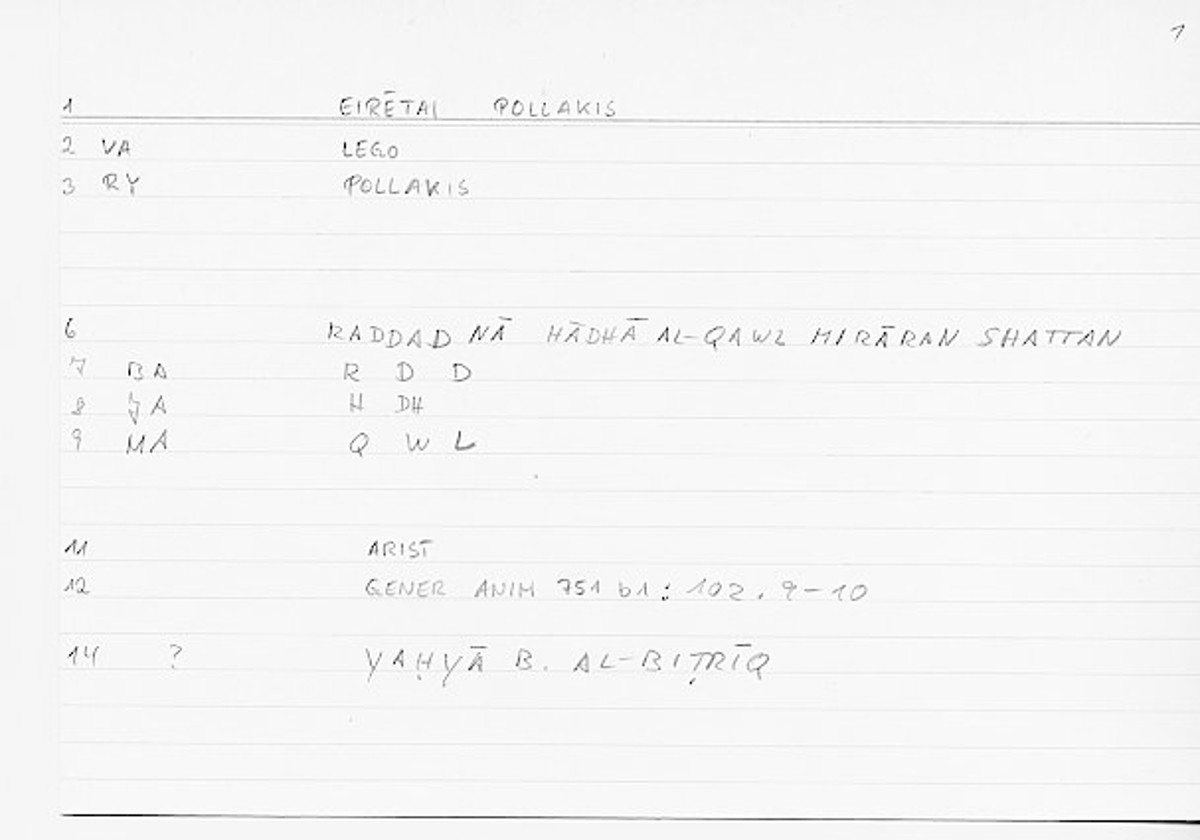 1
1 EIRĒTAI POLLAKIS
2 VA LEGO
3 RY POLLAKIS
6 RADDAD NĀ HĀDHĀ AL-QAWL MIRĀRAN SHATTAN
7 BA R D D
8 JA H DH
9 MA Q W L
11 ARIST
12 GENER ANIM 751 b1 : 102. 9-10
14 ? YAḤYĀ B. AL-BIṬRĪQ